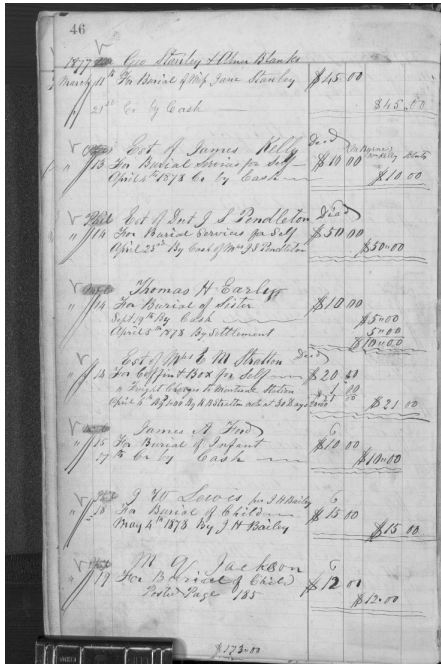 46
1877 Geo Stanley & Oliver Blanks
March 11th For Burial of Wife Jane Stanley $45 00
" 21st Cr by Cash $45.00
Est of James Kelly Dead
" 13 For Burial Services for Self $10 00
April 4th 1878 Cr by Cash $10 00
Est of Dect J S Pendleton Dead
" 14 For Burial Services for Self $50 00
April 23d By Cash of Mrs J S Pendleton $50.00
Thomas H Early
" 14 For Burial of Sister $10 00
Sept 19th By Cash $5.00
April 5th 1878 By Settlement 5.00
$10.00
Est of Mrs E M Stratton Dead
" 14 For Coffin & Box for Self $20 00
" Freight Charges to Station
April 5th By Stratton note at 30 Days $21 00
James A Ford
" 15 For Burial of Infant $10 00
17th Cr by Cash $10.00
J W Lewis per J H Bailey
" 18 For Burial of Child $15 00
May 4th 1878 By J H Bailey $15 00
M G Jackson
" 19 For Burial of Child $12 00
Posted Page 185 $12.00
$173.00